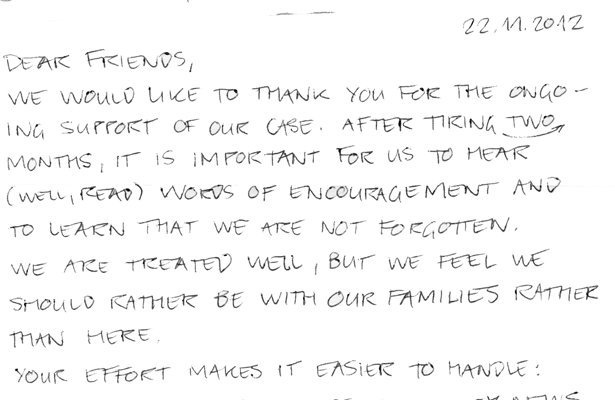 22.11.2012
DEAR FRIENDS,
WE WOULD LIKE TO THANK YOU FOR THE ONGO-
ING SUPPORT OF OUR CASE. AFTER TIRING TWO
MONTHS, IT IS IMPORTANT FOR US TO HEAR
(WELL, READ) WORDS OF ENCOURAGEMENT AND
TO LEARN THAT WE ARE NOT FORGOTTEN.
WE ARE TREATED WELL, BUT WE FEEL WE
SHOULD RATHER BE WITH OUR FAMILIES RATHER
THAN HERE.
YOUR EFFORT MAKES IT EASIER TO HANDLE: